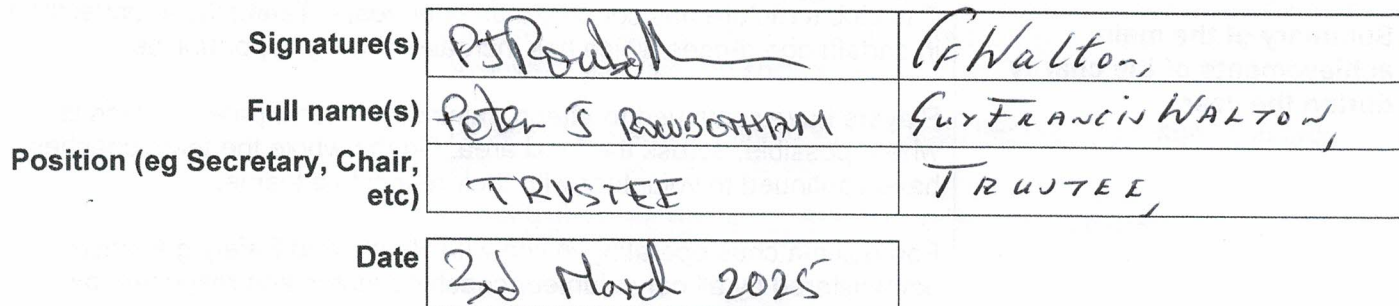 Signature(s) PJRowboth GFWalton,
Full name(s) Peter J ROWBOTHAM GUY FRANCIS WALTON,
Position (eg Secretary, Chair,
etc) TRUSTEE TRUSTEE,
Date 3rd March 2025